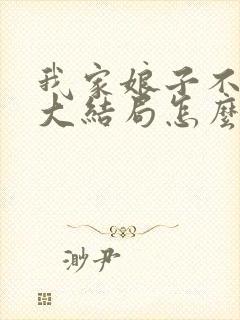 我家娘子不
大结局怎麽
渺尹